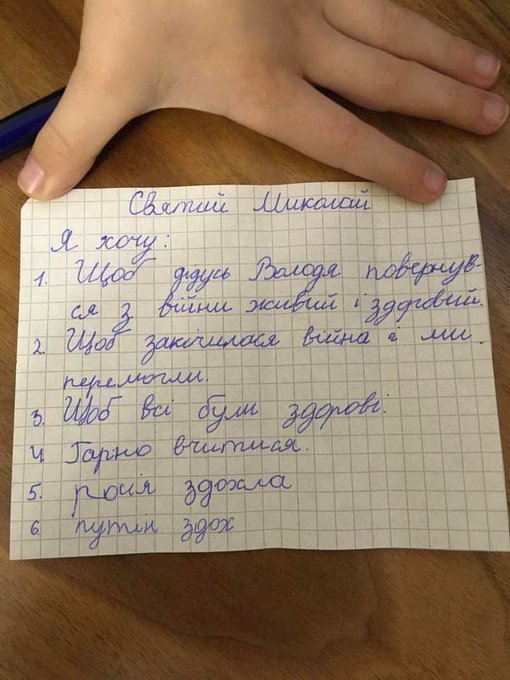 Святий Миколай
Я хочу:
1. Щоб дідусь Володя повернув-
ся з війни живий і здоровий.
2. Щоб закічилася війна і ми
перемогли.
3. Щоб всі були здорові.
4. Гарно вчитися.
5. росія здохла
6. путін здох